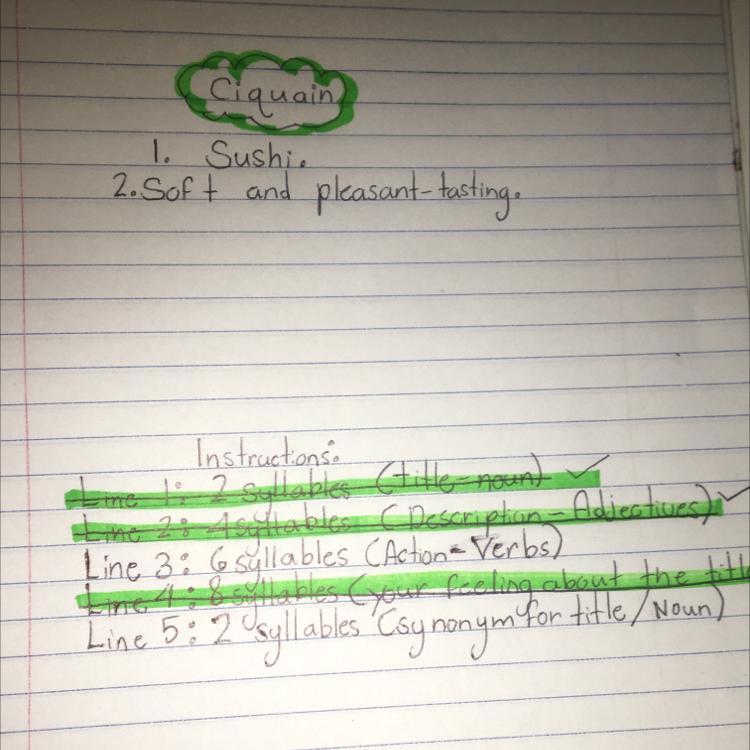 Ciquain
1. Sushi.
2. Soft and pleasant-tasting.
Instructions:
Line 1: 2 syllables (title-noun) ✓
Line 2: 4 syllables (Description-Adjectives) ✓
Line 3: 6 syllables (Action-Verbs)
Line 4: 8 syllables (your feeling about the title
Line 5: 2 syllables (synonym for title/Noun)